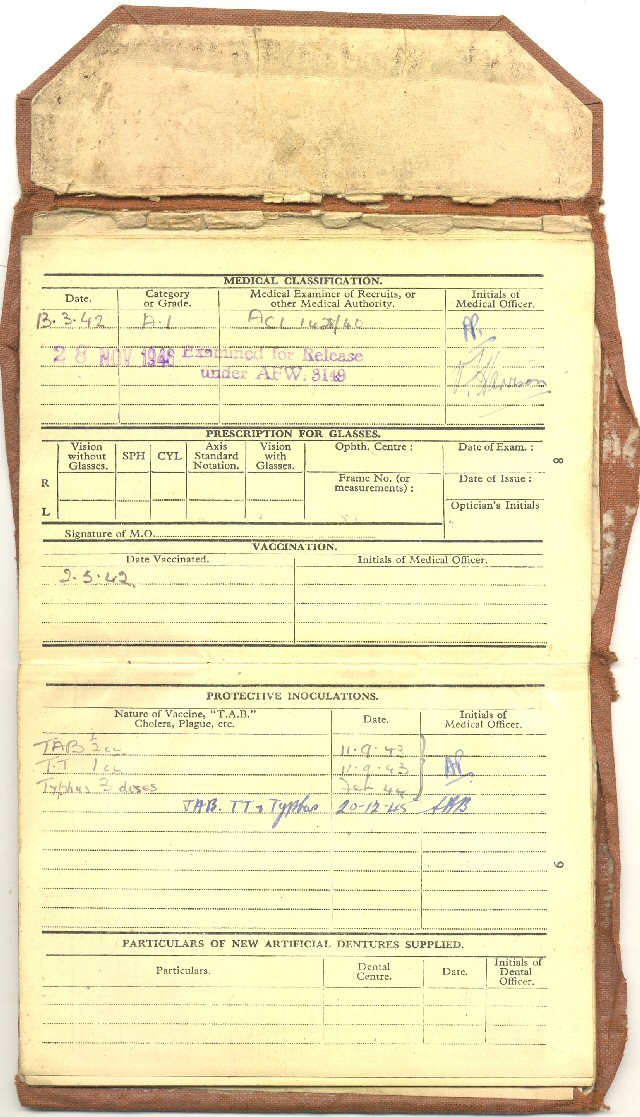 MEDICAL CLASSIFICATION.
Date. Category or Grade. Medical Examiner of Recruits, or other Medical Authority. Initials of Medical Officer.
13.3.42 A.1 ACI 1428/40 AP.
28 NOV 1946 Examined for Release
under AFW. 3149
PRESCRIPTION FOR GLASSES.
Vision without Glasses. SPH CYL Axis Standard Notation. Vision with Glasses. Ophth. Centre : Date of Exam. :
R
Frame No. (or measurements) : Date of Issue :
L
Optician's Initials
Signature of M.O.
8
VACCINATION.
Date Vaccinated. Initials of Medical Officer.
2.5.42
PROTECTIVE INOCULATIONS.
Nature of Vaccine, "T.A.B." Cholera, Plague, etc. Date. Initials of Medical Officer.
TAB ½ cc 11.9.43
T.T 1 cc 11.9.43 AP.
Typhus 3 doses Feb 44
TAB. TT & Typhus 20-12-45
9
PARTICULARS OF NEW ARTIFICIAL DENTURES SUPPLIED.
Particulars. Dental Centre. Date. Initials of Dental Officer.